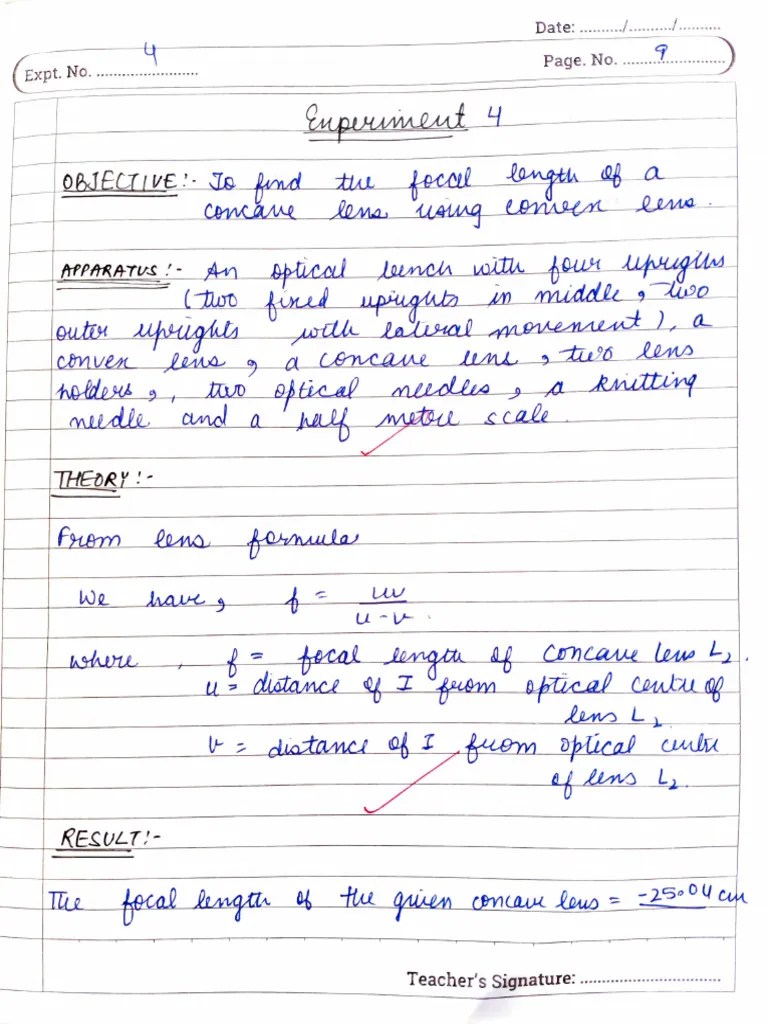 Date: ........../........../..........
Expt. No. 4
Page. No. 9
Experiment 4
OBJECTIVE:- To find the focal length of a
concave lens using convex lens.
APPARATUS:- An optical bench with four uprights
(two fixed uprights in middle, two
outer uprights with lateral movement), a
convex lens, a concave lens, two lens
holders,, two optical needles, a knitting
needle and a half metre scale.
THEORY:-
From lens formula
We have, f = uv / u-v.
where, f = focal length of concave lens L2.
u = distance of I from optical centre of
lens L2.
v = distance of I from optical centre
of lens L2.
RESULT:-
The focal length of the given concave lens = -25.04 cm
Teacher's Signature: ................................